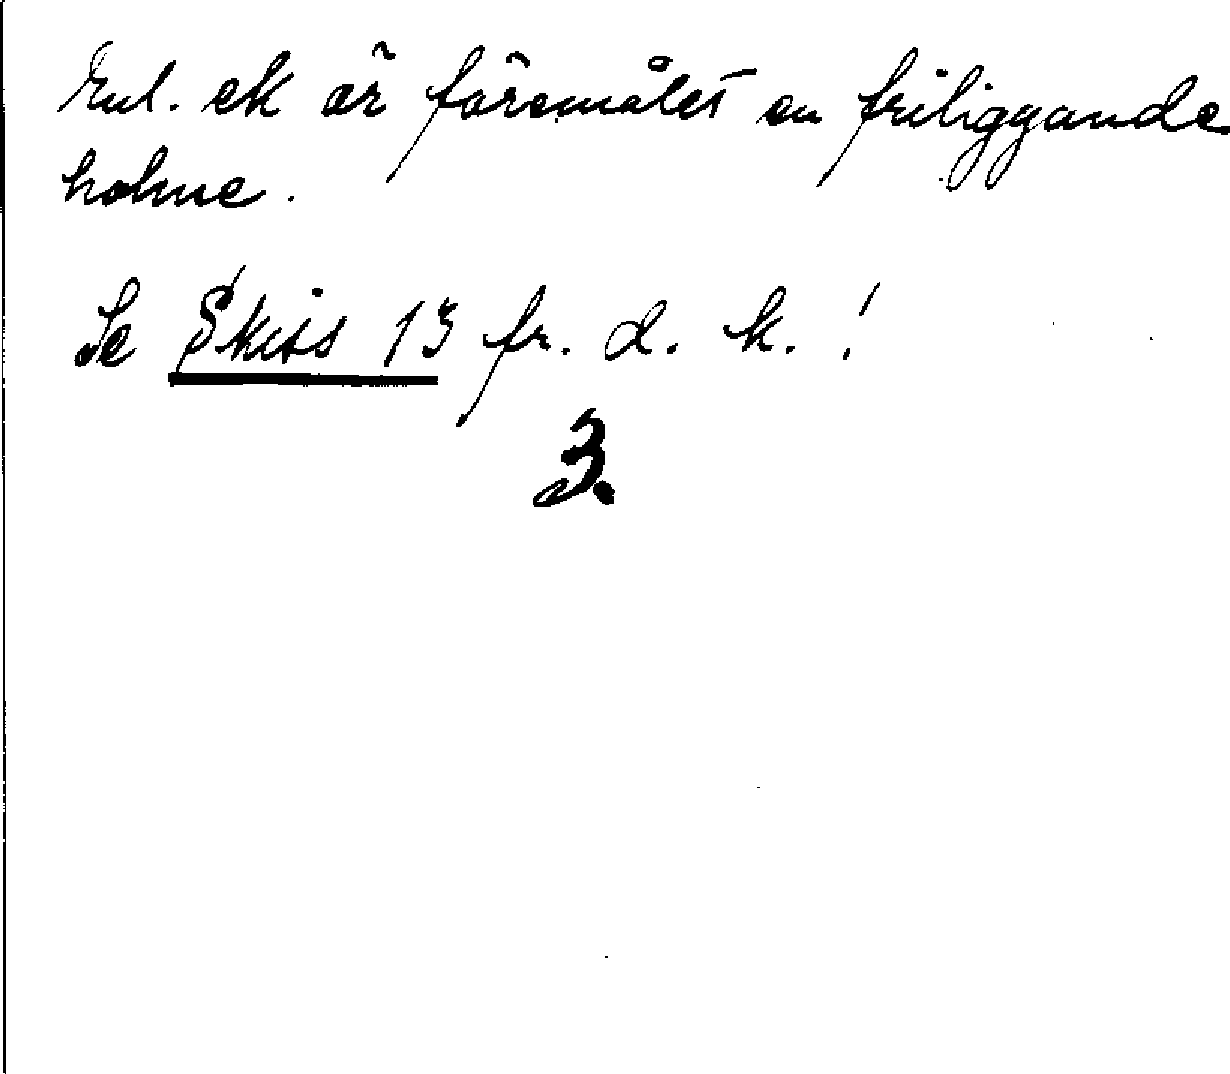 Enl. ek är föremålet en friliggande
holme.
Se Skiss 13 fr. d. k. !
3.